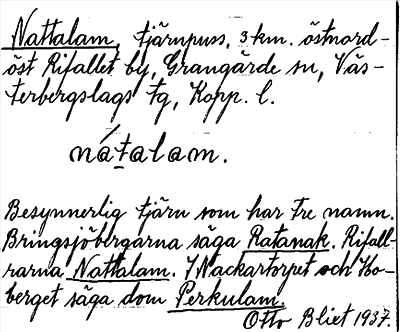 Nattalam, tjärnpuss, 3 km. östnord-
öst Rifallet by, Grangärde sn, Väs-
terbergslags tg, Kopp. l.
nátalam.
Besynnerlig tjärn som har tre namn.
Bringsjöbergarna säga Ratanak. Rifall-
rarna Nattalam. I Nackartorpet och Ho-
berget säga dom Perkulam.
Otto Bliet 1937.